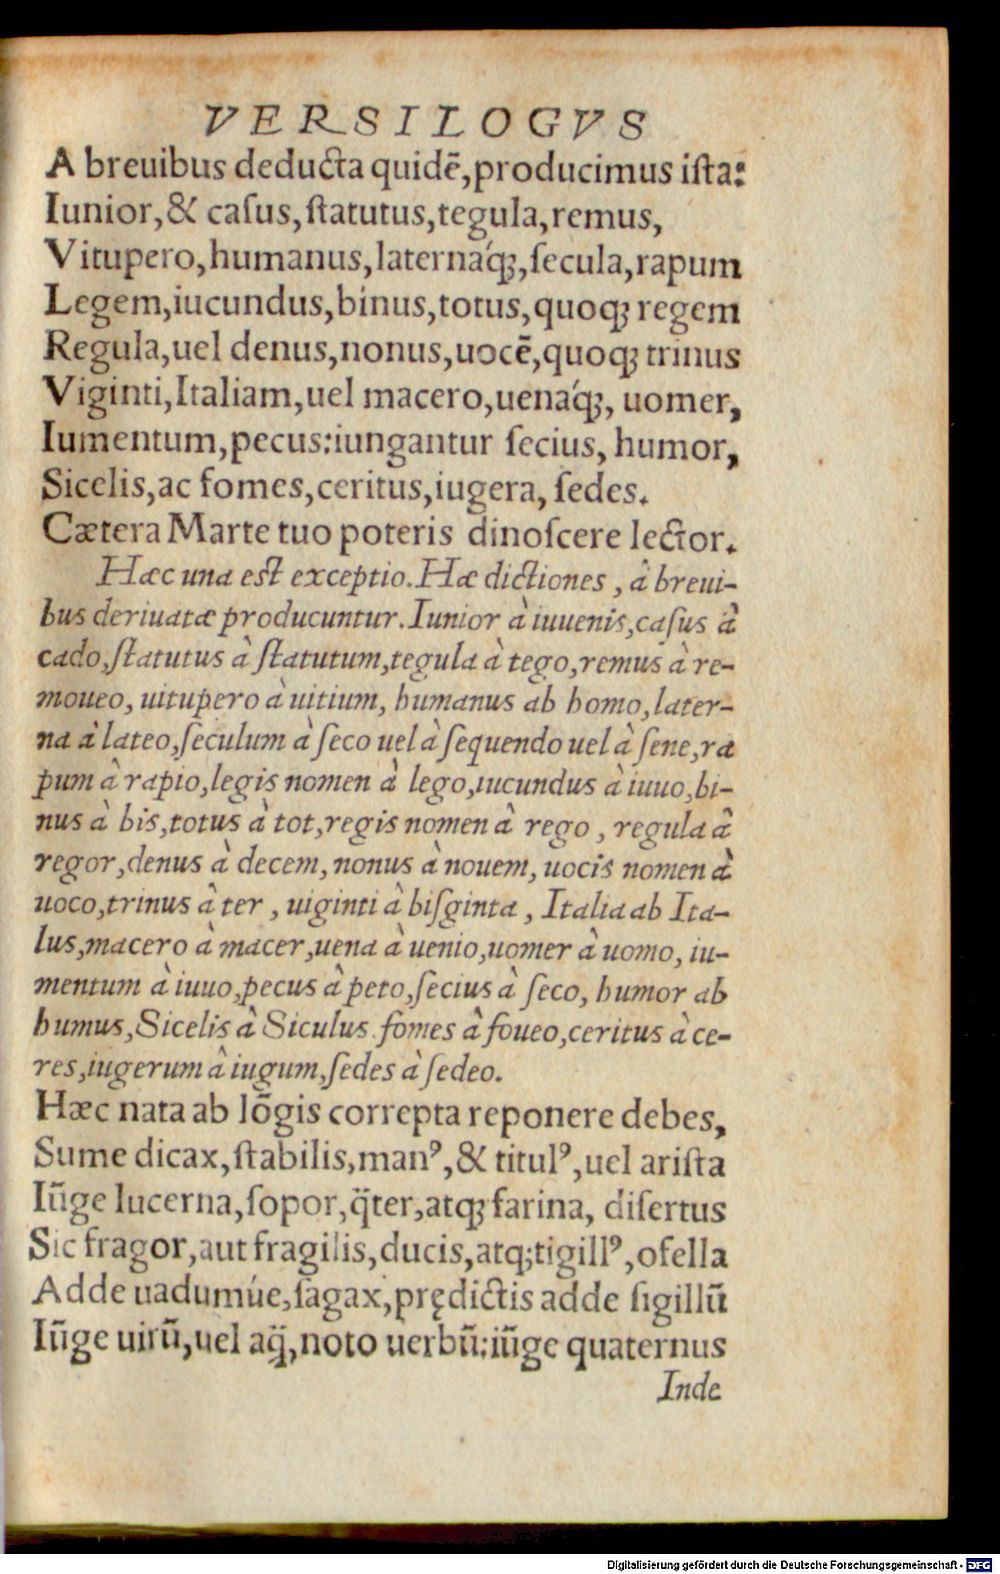 VERSILOGVS
A breuibus deducta quidē,producimus iſta:
Iunior,& caſus,ſtatutus,tegula,remus,
Vitupero,humanus,laternáq;,ſecula,rapum
Legem,iucundus,binus,totus,quoq; regem
Regula,uel denus,nonus,uocē,quoq; trinus
Viginti,Italiam,uel macero,uenáq;, uomer,
Iumentum,pecus:iungantur ſecius, humor,
Sicelis,ac fomes,ceritus,iugera, ſedes.
Cætera Marte tuo poteris dinoſcere lector.
Hæc una eſt exceptio.Hæ dictiones , à breui-
bus deriuatæ producuntur.Iunior à iuuenis,caſus à
cado,ſtatutus à ſtatutum,tegula à tego,remus à re-
moueo, uitupero à uitium, humanus ab homo,later-
na à lateo,ſeculum à ſeco uel à ſequendo uel à ſene,ra
pum à rapio,legis nomen à lego,iucundus à iuuo,bi-
nus à bis,totus à tot,regis nomen à rego , regula à
regor,denus à decem, nonus à nouem, uocis nomen à
uoco,trinus à ter , uiginti à biſginta , Italia ab Ita-
lus,macero à macer,uena à uenio,uomer à uomo, iu-
mentum à iuuo,pecus à peto,ſecius à ſeco, humor ab
humus,Sicelis à Siculus fomes à foueo,ceritus à ce-
res,iugerum à iugum,ſedes à ſedeo.
Hæc nata ab lōgis correpta reponere debes,
Sume dicax,ſtabilis,manꝰ,& titulꝰ,uel ariſta
Iūge lucerna,ſopor,q̈ter,atq; farina, diſertus
Sic fragor,aut fragilis,ducis,atq;tigillꝰ,ofella
Adde uadumúe,ſagax,prędictis adde ſigillū
Iūge uirū,uel aq̈,noto uerbū:iūge quaternus
Inde
Digitalisierung gefördert durch die Deutsche Forschungsgemeinschaft - DFG